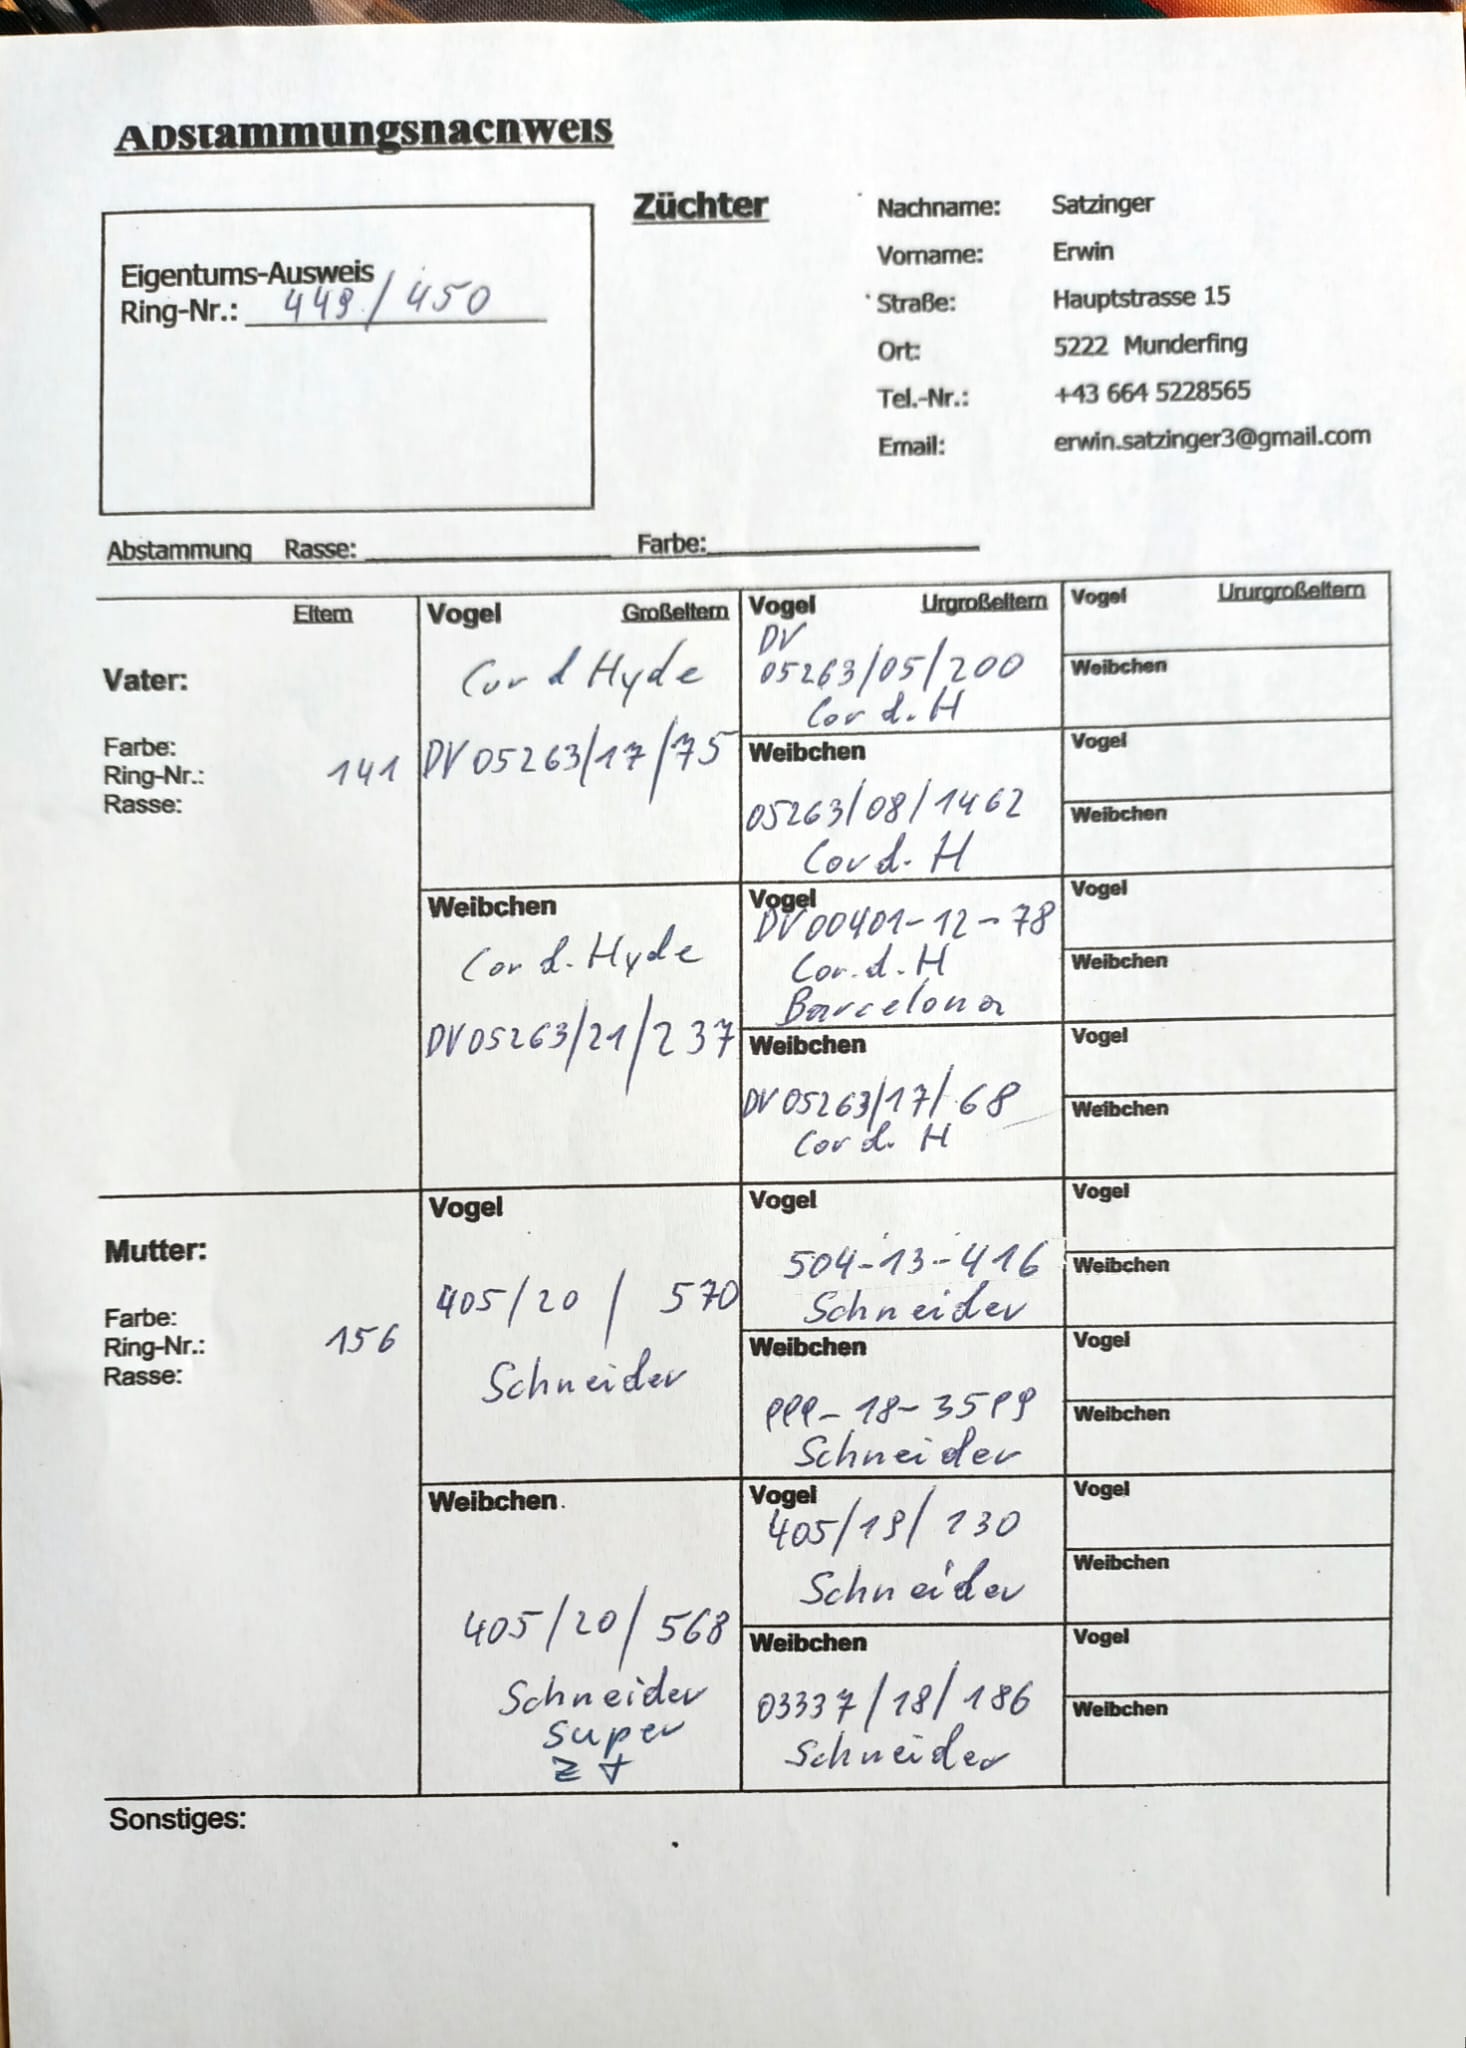 Abstammungsnachweis
Eigentums-Ausweis
Ring-Nr.: 449/450
Züchter
Nachname: Satzinger
Vorname: Erwin
Straße: Hauptstrasse 15
Ort: 5222 Munderfing
Tel.-Nr.: +43 664 5228565
Email: erwin.satzinger3@gmail.com
Abstammung Rasse: Farbe:
Eltern
Vater:
Farbe:
Ring-Nr.: 141
Rasse:
Vogel Großeltern
Cor d Hyde
DV 05263/17/75
Weibchen
Cor d. Hyde
DV 05263/21/237
Vogel Urgroßeltern
DV
05263/05/200
Cor d. H
Weibchen
05263/08/1462
Cor d. H
Vogel
DV 00401-12-78
Cor. d. H
Barcelona
Weibchen
DV 05263/17/68
Cor d. H
Vogel Ururgroßeltern
Weibchen
Vogel
Weibchen
Vogel
Weibchen
Vogel
Weibchen
Mutter:
Farbe:
Ring-Nr.: 156
Rasse:
Vogel
405/20/570
Schneider
Weibchen
405/20/568
Schneider
super
Vogel
504-13-416
Schneider
Weibchen
18-
Schneider
Vogel
405/19/130
Schneider
Weibchen
03337/18/186
Schneider
Vogel
Weibchen
Vogel
Weibchen
Vogel
Weibchen
Vogel
Weibchen
Sonstiges: